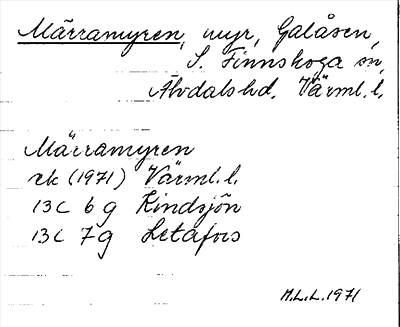 Märramyren, myr, Galåsen,
S. Finnskoga sn,
Älvdals hd. Värml. l.
Märramyren
rek (1971) Värml. l.
13C 6g Rindsjön
13C 7g Letafors
M.L.L. 1971